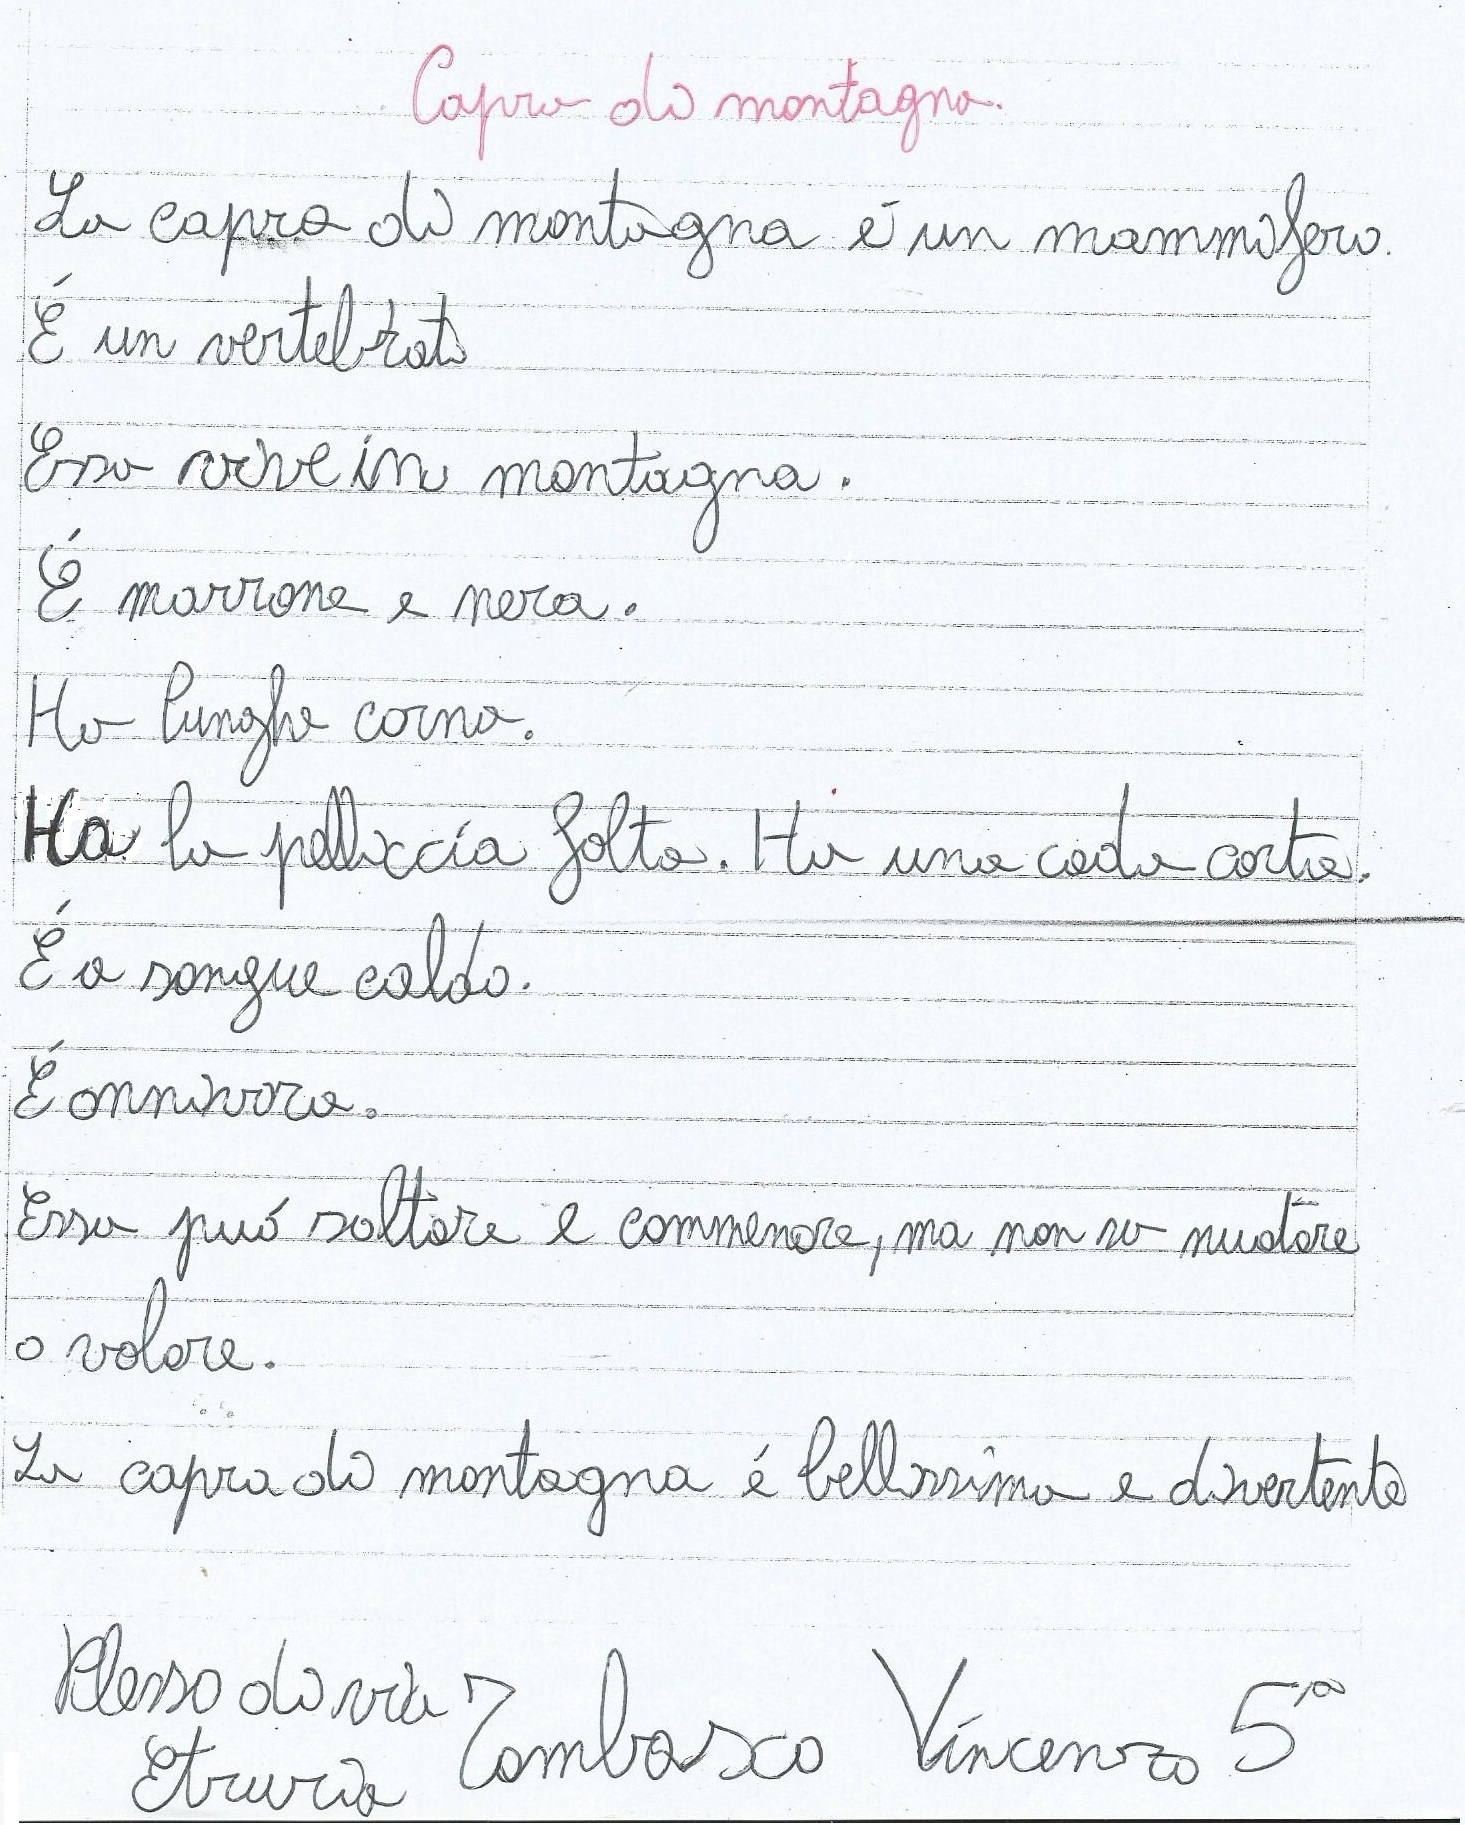 Capra di montagna.
La capra di montagna é un mammifero.
É un vertebrato
Essa vive in montagna.
É marrone e nera.
Ha lunghe corna.
Ha la pelliccia folta. Ha una coda corta.
É a sangue caldo.
É onnivora.
Essa puó saltare e commenare, ma non sa nuotare
o volare.
La capra di montagna é bellissima e divertente
Plesso di via Tombasco Vincenzo 5ª
Etruria